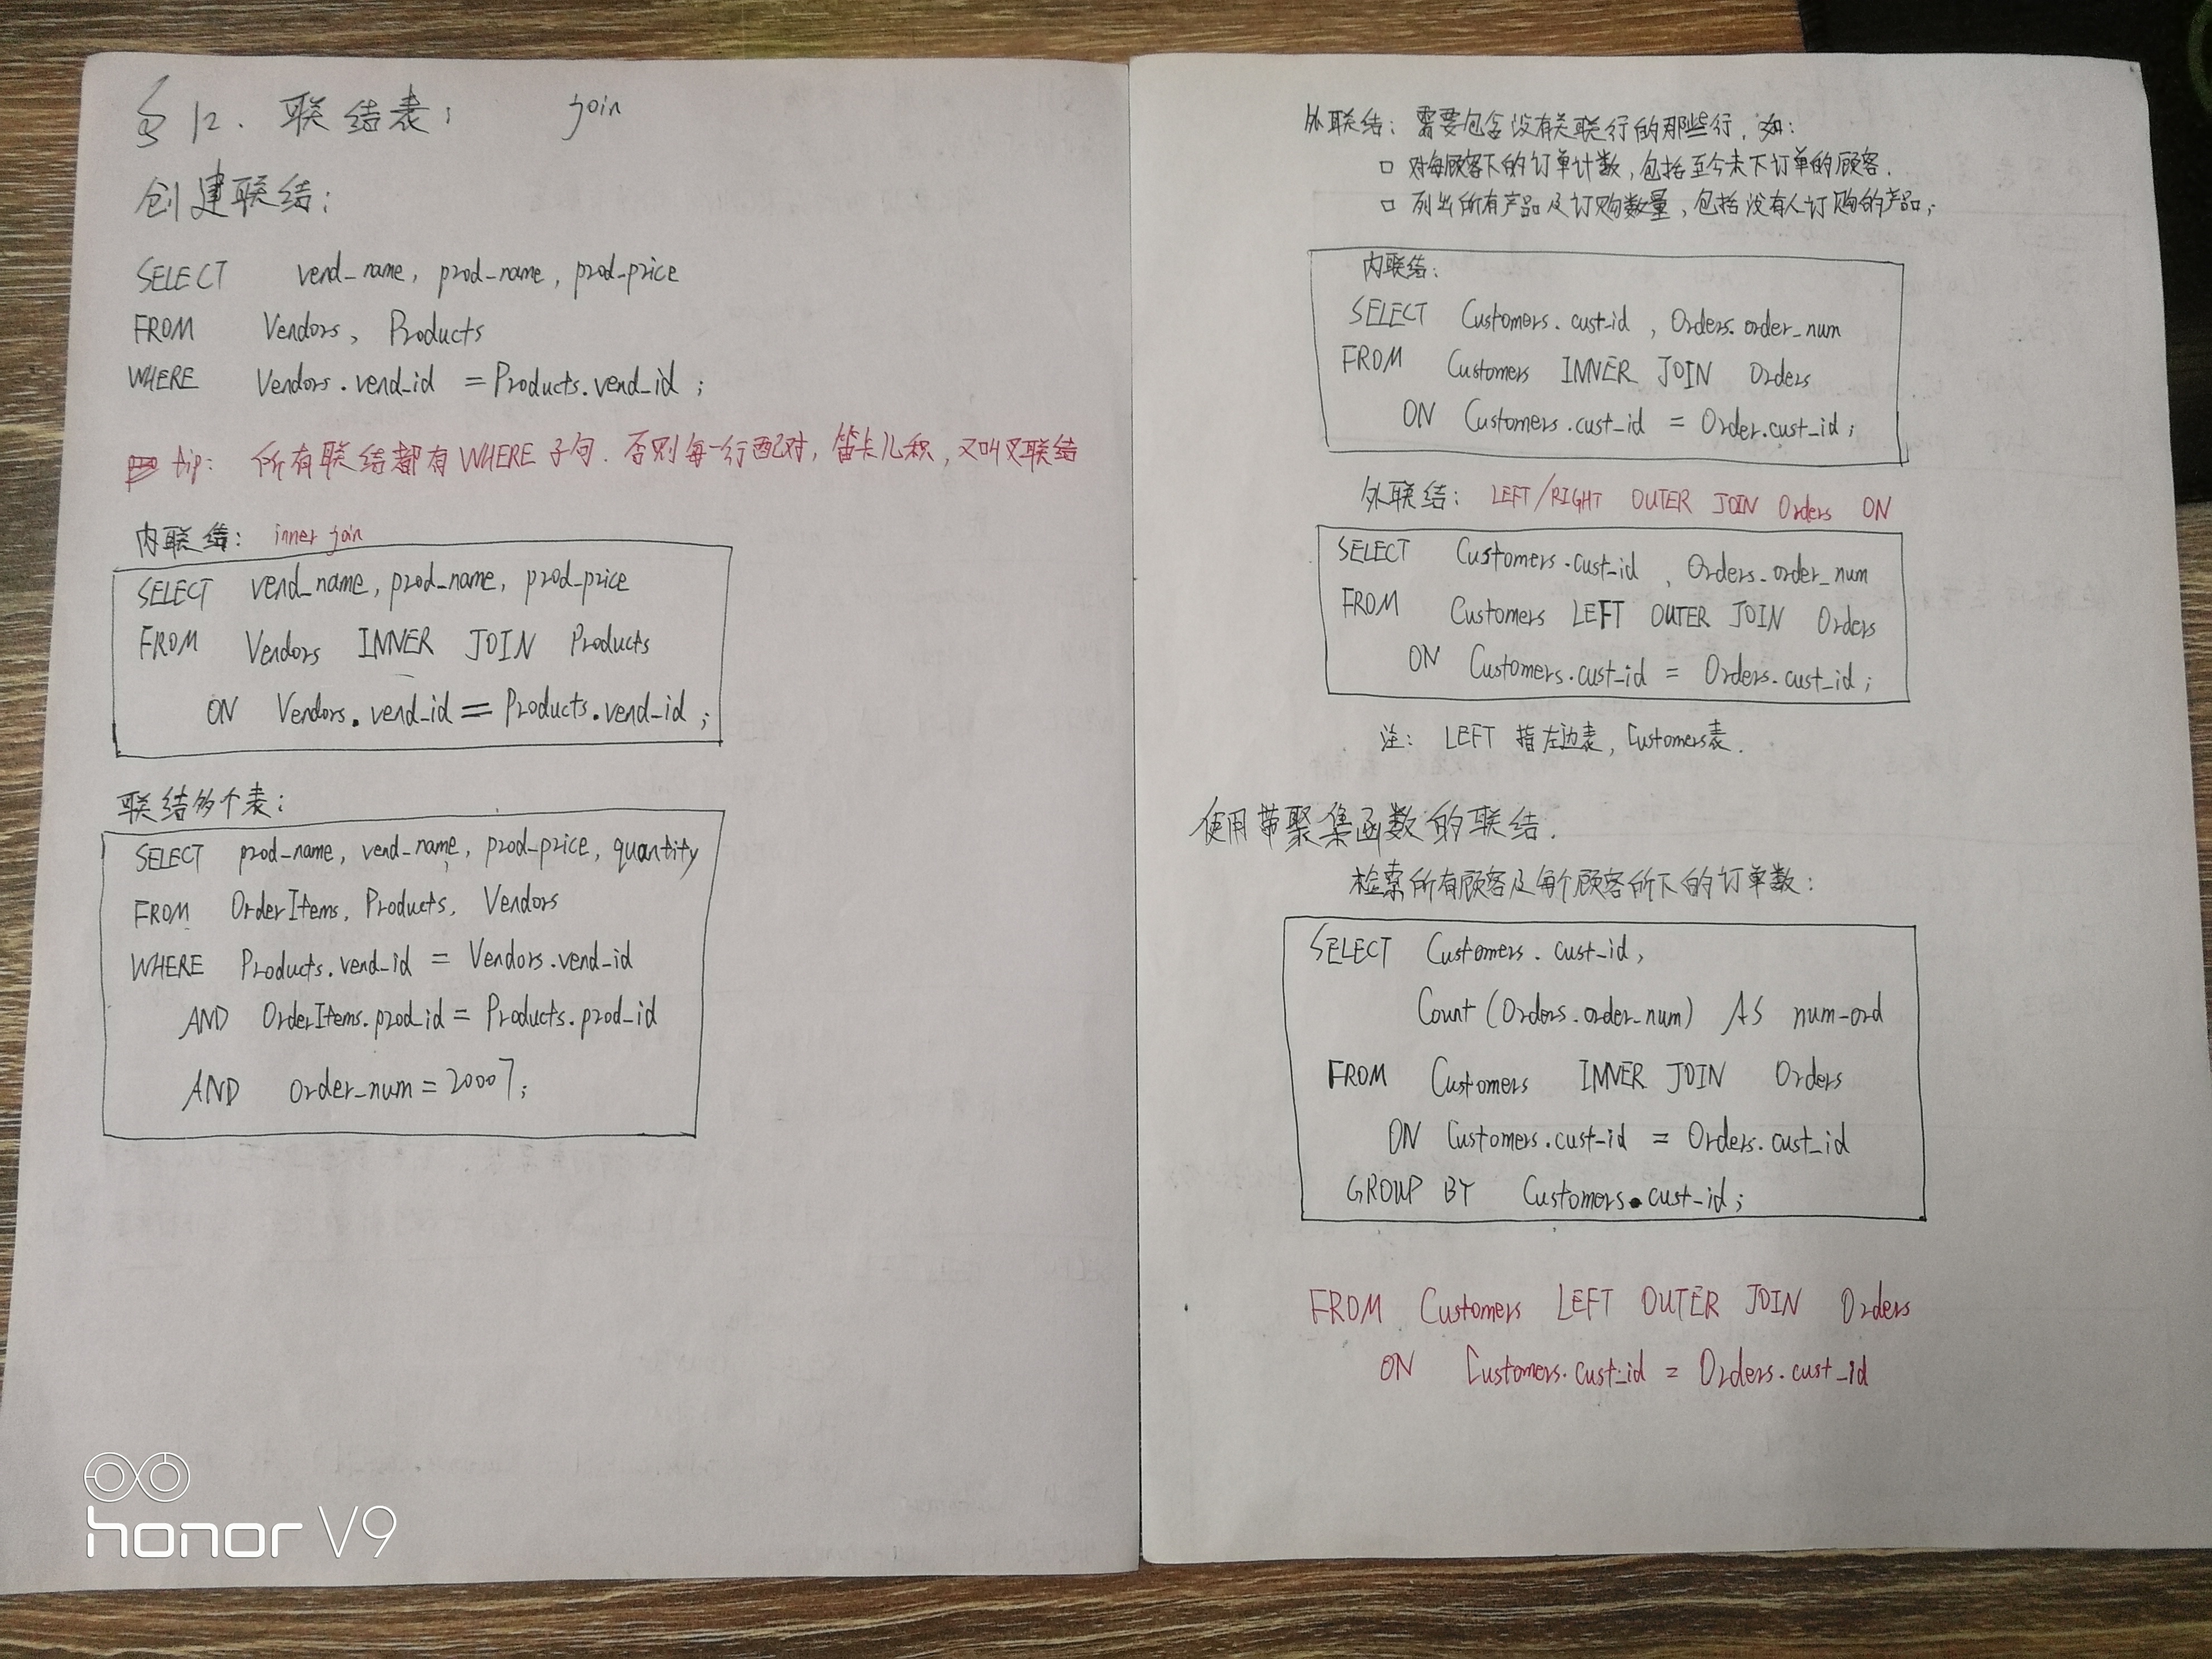 § 12. 联结表: join
创建联结:
SELECT vend_name, prod_name, prod_price
FROM Vendors, Products
WHERE Vendors.vend_id = Products.vend_id;
tip: 所有联结都有WHERE子句. 否则每一行配对, 笛卡儿积, 又叫叉联结
内联结: inner join
SELECT vend_name, prod_name, prod_price
FROM Vendors INNER JOIN Products
ON Vendors.vend_id = Products.vend_id;
联结多个表:
SELECT prod_name, vend_name, prod_price, quantity
FROM OrderItems, Products, Vendors
WHERE Products.vend_id = Vendors.vend_id
AND OrderItems.prod_id = Products.prod_id
AND order_num = 20007;
外联结: 需要包含没有关联行的那些行. 如:
□ 对每顾客下的订单计数, 包括至今未下订单的顾客.
□ 列出所有产品及订购数量, 包括没有人订购的产品;
内联结:
SELECT Customers.cust_id, Orders.order_num
FROM Customers INNER JOIN Orders
ON Customers.cust_id = Order.cust_id;
外联结: LEFT/RIGHT OUTER JOIN Orders ON
SELECT Customers.cust_id, Orders.order_num
FROM Customers LEFT OUTER JOIN Orders
ON Customers.cust_id = Orders.cust_id;
注: LEFT 指左边表, Customers表.
使用带聚集函数的联结.
检索所有顾客及每个顾客所下的订单数:
SELECT Customers.cust_id,
Count(Orders.order_num) AS num-ord
FROM Customers INNER JOIN Orders
ON Customers.cust-id = Orders.cust_id
GROUP BY Customers.cust-id;
FROM Customers LEFT OUTER JOIN Orders
ON Customers.cust_id = Orders.cust_id
honor V9